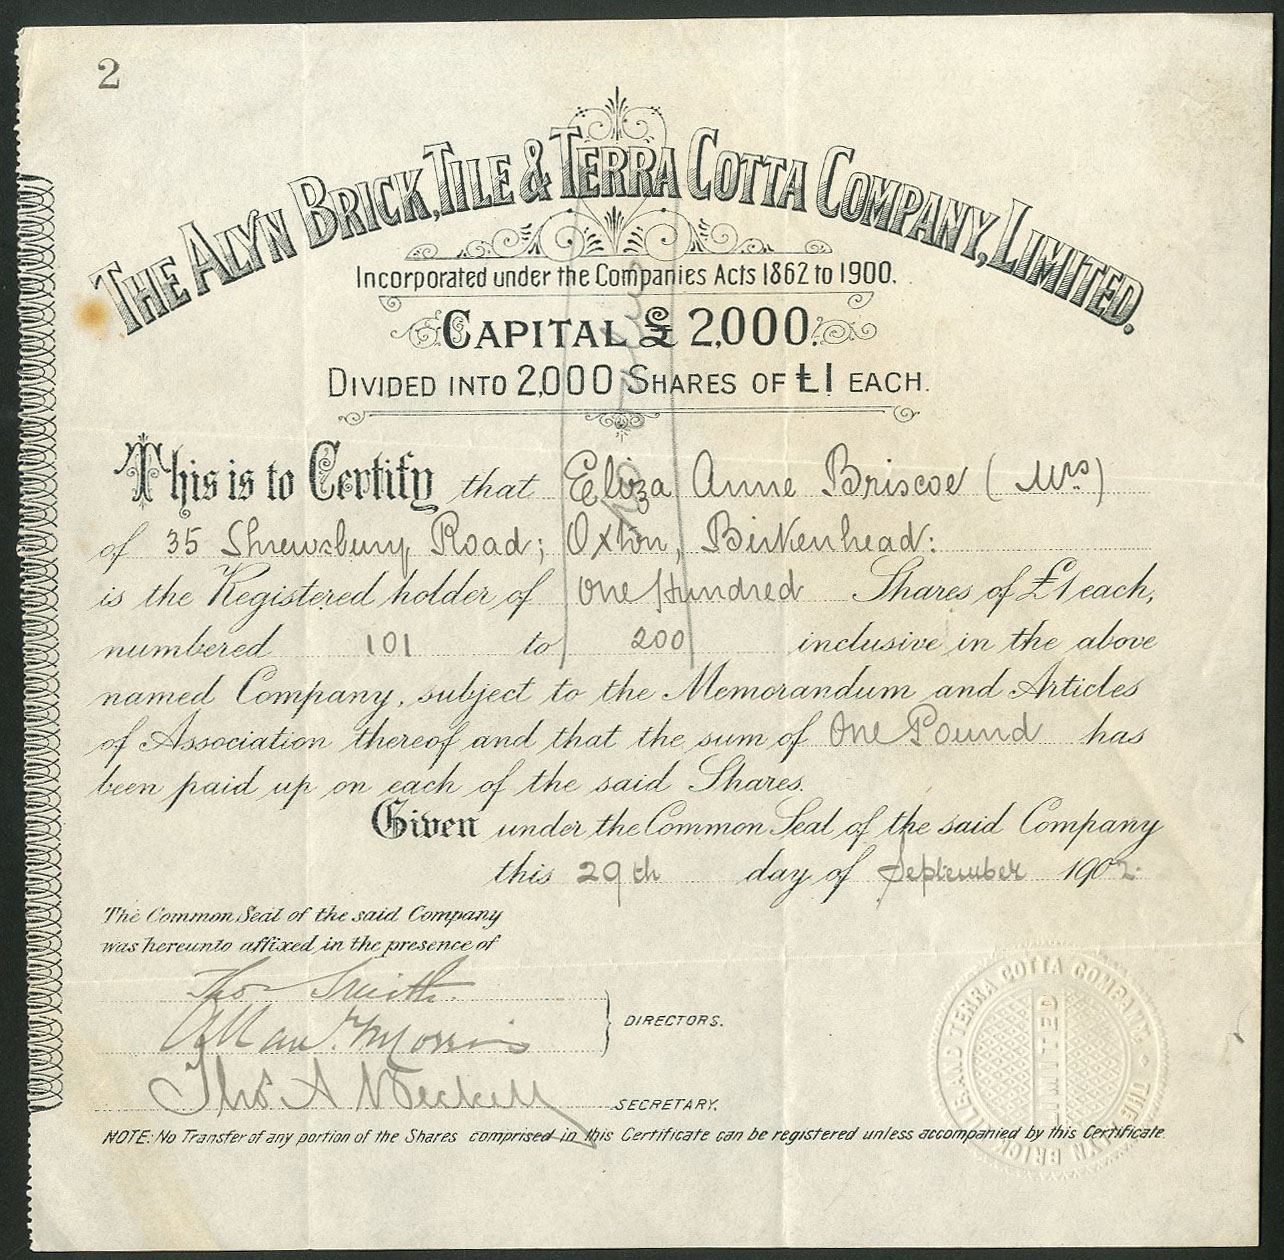 2
THE ALYN BRICK, TILE & TERRA COTTA COMPANY, LIMITED.
Incorporated under the Companies Acts 1862 to 1900.
CAPITAL £ 2,000.
DIVIDED INTO 2,000 SHARES OF £1 EACH.
This is to Certify that Eliza Anne Briscoe (Mrs)
of 35 Shrewsbury Road; Oxton, Birkenhead:
is the Registered holder of One Hundred Shares of £1 each,
numbered 101 to 200 inclusive in the above
named Company, subject to the Memorandum and Articles
of Association thereof and that the sum of One Pound has
been paid up on each of the said Shares.
Given under the Common Seal of the said Company
this 29th day of September 1902.
The Common Seal of the said Company
was hereunto affixed in the presence of
Thos Smith
Allan Morris
DIRECTORS.
Thos A
SECRETARY.
NOTE: No Transfer of any portion of the Shares comprised in this Certificate can be registered unless accompanied by this Certificate.
THE ALYN BRICK TILE AND TERRA COTTA COMPANY
LIMITED